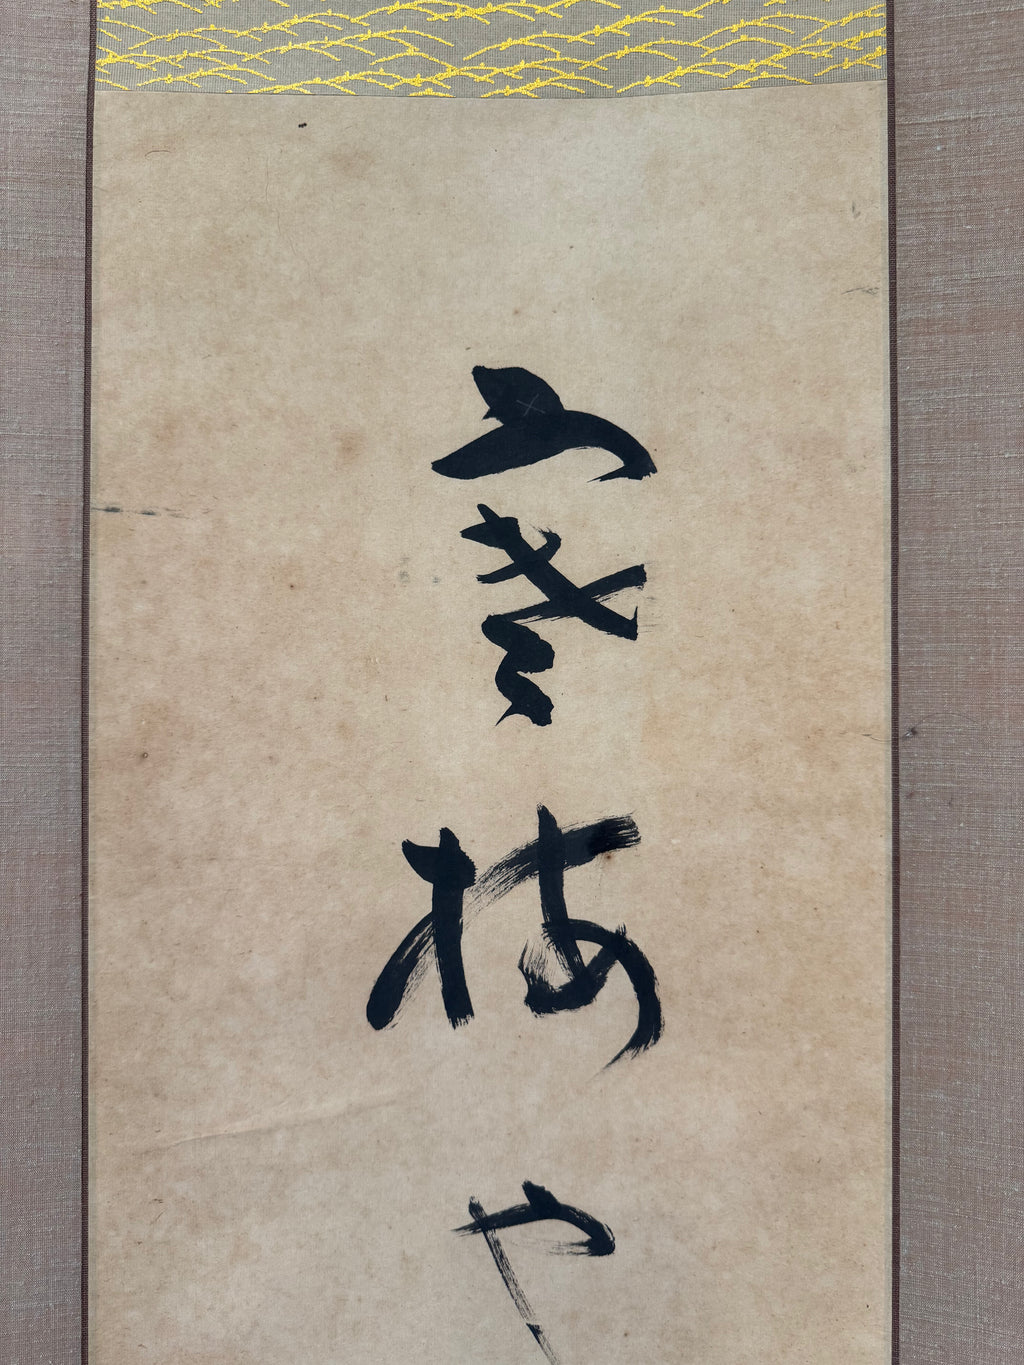 寒梅や